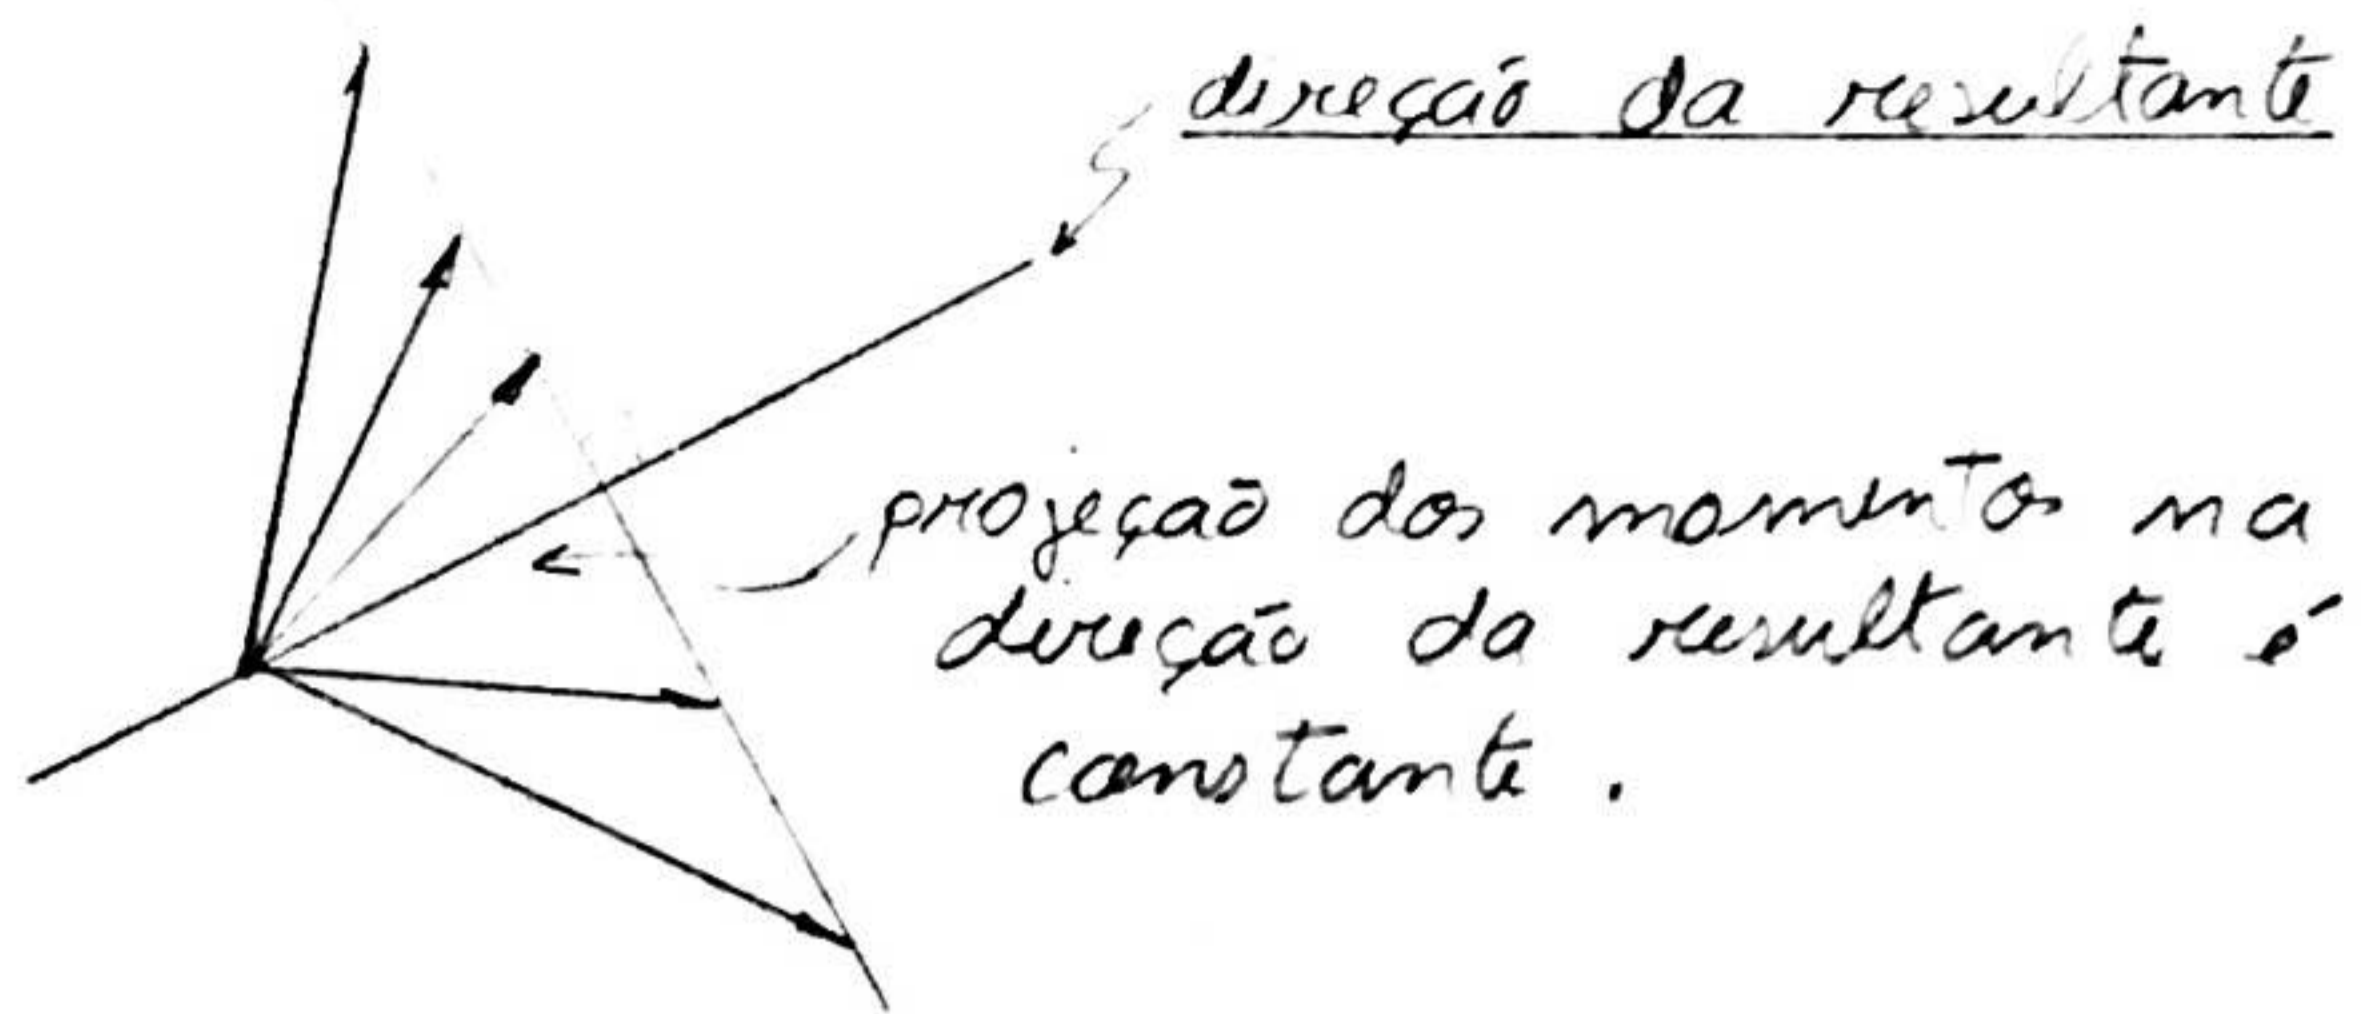 direção da resultante
projeção dos momentos na
direção da resultante é
constante.